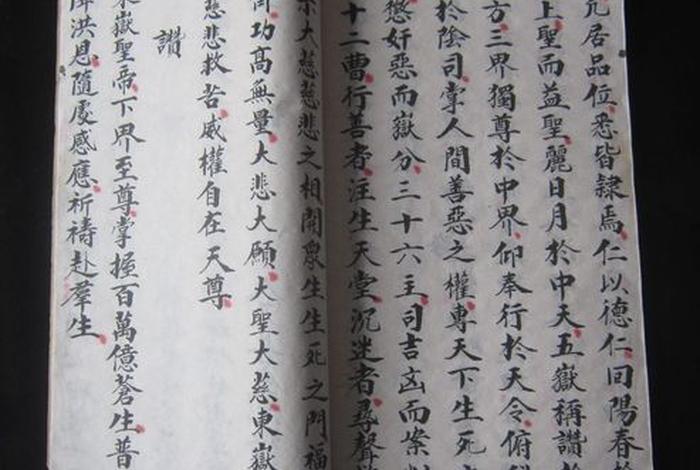 凢居品位悉皆隸焉仁以德仁回陽春
上聖而益聖麗日月於中天五嶽稱讚
方三界獨尊於中界仰奉行於天令俯
於陰司掌人間善惡之權專天下生死
懲奸惡而嶽分三十六主司吉凶而案
十二曹行善者注生天堂沉迷者尋聲
大慈慈悲之相開衆生生死之門福
功高無量大悲大願大聖大慈東嶽
慈悲救苦威權自在天尊
讚
嶽聖帝下界至尊掌握百萬億蒼生普
洪恩隨處感應祈禱赴羣生